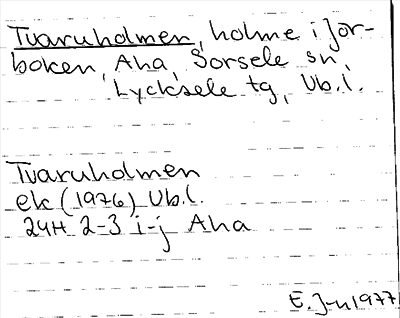 Tvaruholmen, holme i jor-
boken, Aha, Sorsele sn,
Lycksele tg, Vb.l.
Tvaruholmen
ek (1976) Vb.l.
24H 2-3 i-j Aha
E. J-n 1977